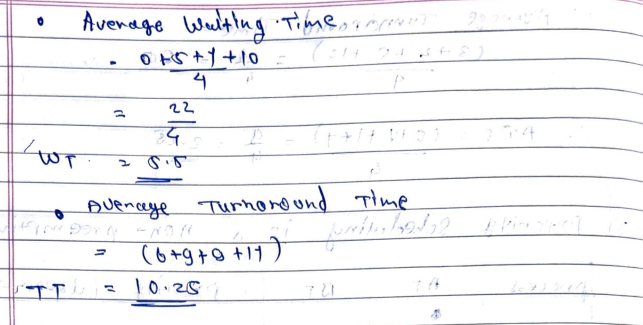 • Average Waiting Time
= 0+5+7+10
4
= 22
4
WT = 5.5
• Average Turnoround Time
= (6+9+9+17)
TT = 10.25